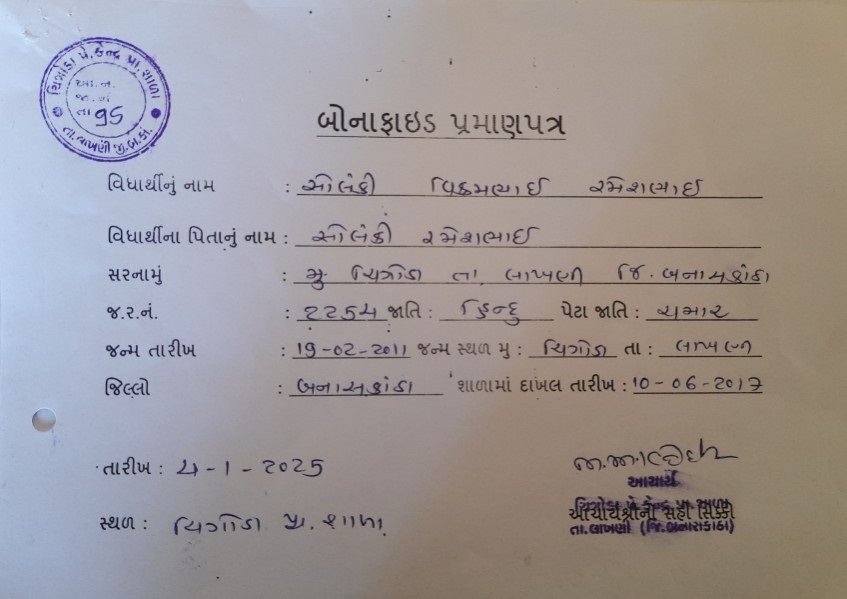 ચિત્રોડા પે. કેન્દ્ર પ્રા. શાળા
આ.ન.
જા.નં
તા 95
તા. લાખણી જી.બ.કાં.
બોનાફાઇડ પ્રમાણપત્ર
વિદ્યાર્થીનું નામ : સોલંકી વિક્રમભાઈ રમેશભાઈ
વિદ્યાર્થીના પિતાનું નામ : સોલંકી રમેશભાઈ
સરનામું : મુ ચિત્રોડા તા. લાખણી જિ. બનાસકાંઠા
જ.ર.નં. : ૨૨૬૫ જાતિ : હિન્દુ પેટા જાતિ : ચમાર
જન્મ તારીખ : 19-02-2011 જન્મ સ્થળ મુ : ચિત્રોડા તા : લાખણી
જિલ્લો : બનાસકાંઠા શાળામાં દાખલ તારીખ : 10-06-2017
તારીખ : 4-1-2025
સ્થળ : ચિત્રોડા પ્રા. શાળા
આચાર્ય
ચિત્રોડા પે. કેન્દ્ર પ્રા. શાળા
આચાર્યશ્રીની સહી સિક્કો
તા. લાખણી (જિ. બનાસકાંઠા)